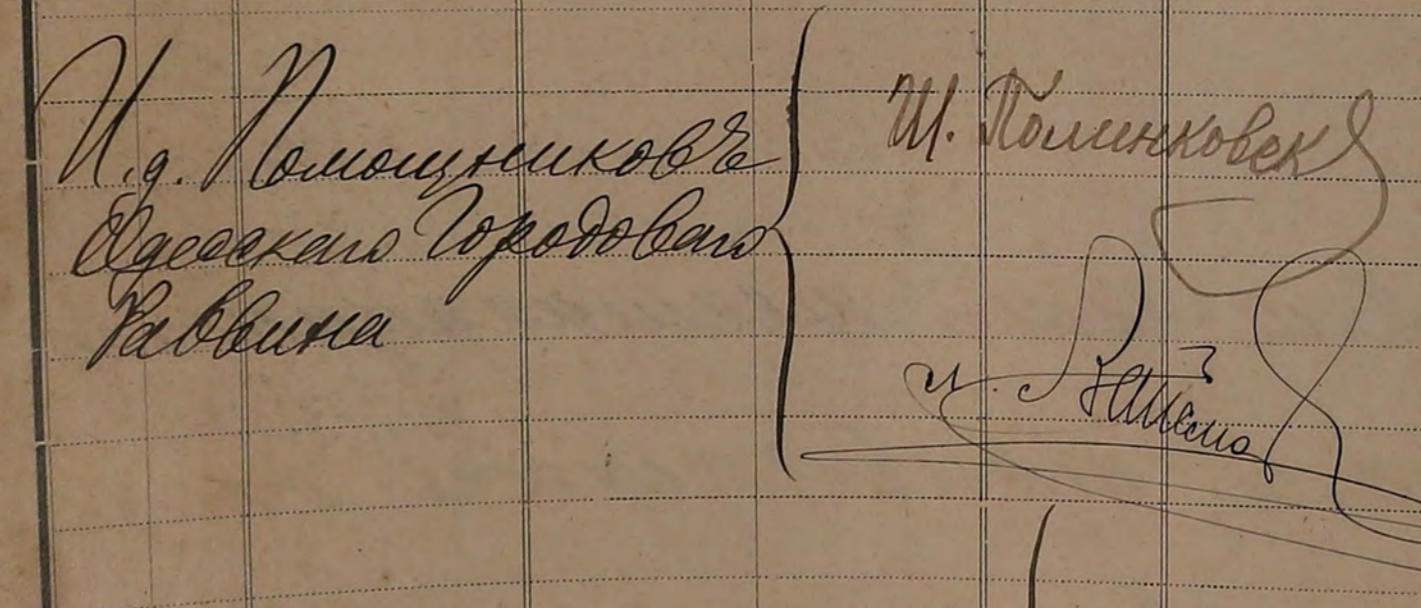 И.д. Помощниковъ
Одесскаго Городоваго
Раввина
Ш. Полинковск
и.